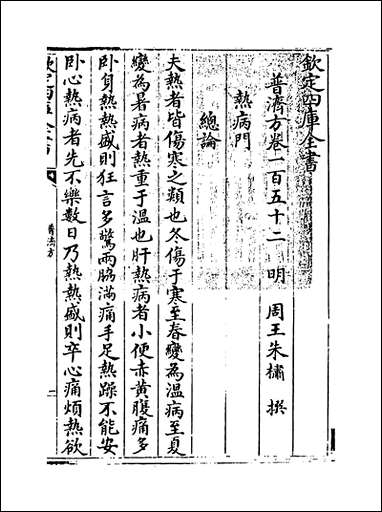 欽定四庫全書
普濟方卷一百五十二　明　周王朱橚　撰
熱病門
總論
夫熱者皆傷寒之類也冬傷于寒至春變為温病至夏
變為暑病者熱重于温也肝熱病者小便赤黄腹痛多
卧身熱熱盛則狂言多驚兩脇滿痛手足熱躁不能安
卧心熱病者先不樂數日乃熱熱盛則卒心痛煩熱欲
普濟方